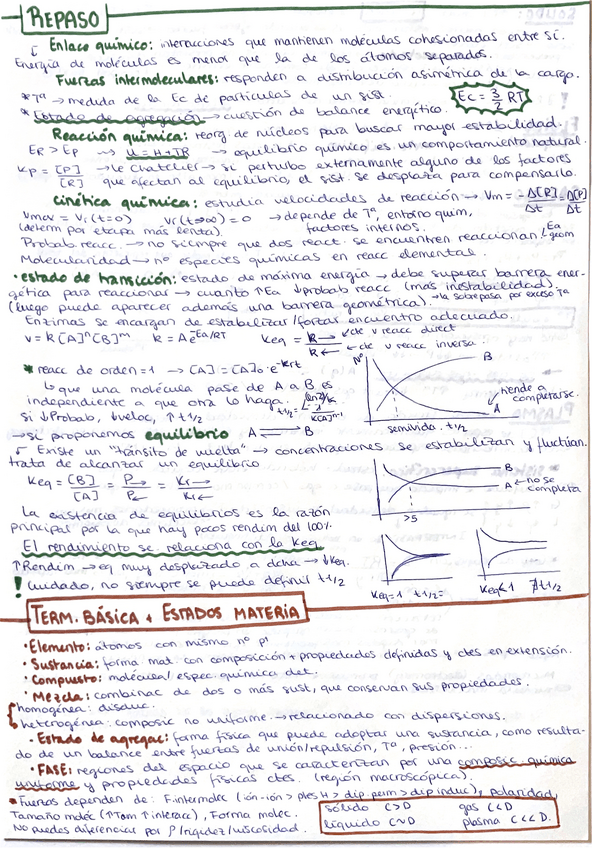 REPASO
Enlace químico: interacciones que mantienen moléculas cohesionadas entre sí.
Energía de moléculas es menor que la de los átomos separados.
Fuerzas intermoleculares: responden a distribución asimétrica de la carga.
* Tª → medida de la Ec de partículas de un sist. Ec = 3/2 RT
* Estado de agregación → cuestión de balance energético.
Reacción química: reorg. de núcleos para buscar mayor estabilidad.
ER > EP → → equilibrio químico es un comportamiento natural.
Kp = [P]/[R] → Le Chatelier → si perturbo externamente alguno de los factores
que afectan al equilibrio, el sist. se desplaza para compensarlo.
Cinética química: estudia velocidades de reacción → Vm = -Δ[R]/Δt = Δ[P]/Δt
vmax = vr(t=0) vr(t→∞) = 0 → depende de Tª, entorno quím,
(determ por etapa más lenta). factores internos.
Probab. reacc. → no siempre que dos react. se encuentren reaccionan Ea geom
Molecularidad → nº especies químicas en reacc elemental.
• estado de transición: estado de máxima energía → debe superar barrera ener-
gética para reaccionar → cuanto ↑Ea ↓probab reacc (más inestabilidad).
(luego puede aparecer además una barrera geométrica). → la sobrepasa por exceso Tª
Enzimas se encargan de estabilizar/forzar encuentro adecuado.
v = k [A]ⁿ[B]ᵐ k = A e^-Ea/RT Keq = k→ / k← cte v reacc direct
cte v reacc inversa
* reacc de orden = 1 → [A] = [A]₀ · e^-krt
↳ que una molécula pase de A a B es
independiente a que otra lo haga.
Si ↓Probab, ↓veloc, ↑ t1/2
Nº B A tiende a completarse.
semivida. t1/2
→ si proponemos equilibrio A ⇌ B
Existe un "tránsito de vuelta" → concentraciones se estabilizan y fluctúan.
trata de alcanzar un equilibrio
Keq = [B]/[A] = P→/P← = Kr→/Kr←
B A ← no se completa
>5
La existencia de equilibrios es la razón
principal por la que hay pocos rendim del 100%.
El rendimiento se relaciona con la Keq
↑Rendim → eq muy desplazado a dcha → ↓keq.
! Cuidado, no siempre se puede definir t1/2
Keq=1 t1/2= Keq<1 ∄t1/2
TERM. BÁSICA + ESTADOS MATERIA
• Elemento: átomos con mismo nº p⁺
• Sustancia: forma mat. con composición + propiedades definidas y ctes en extensión.
• Compuesto: molécula/espec. química det.
• Mezcla: combinac de dos o más sust, que conservan sus propiedades.
homogénea: disoluc.
heterogénea: composic no uniforme. → relacionado con dispersiones.
• Estado de agregac: forma física que puede adoptar una sustancia, como resulta-
do de un balance entre fuerzas de unión/repulsión, Tª, presión...
• FASE: regiones del espacio que se caracterizan por una composic. química
uniforme y propiedades físicas ctes. (región macroscópica).
* Fuerzas dependen de: F. intermolec (ion-ión > ptes H > dip. perm > dip induc), polaridad,
Tamaño moléc (↑Tam ↑interacc), Forma molec.
No puedes diferenciar por ρ/rigidez/viscosidad.
sólido C>D gas C<D
líquido C~D plasma C<<D.